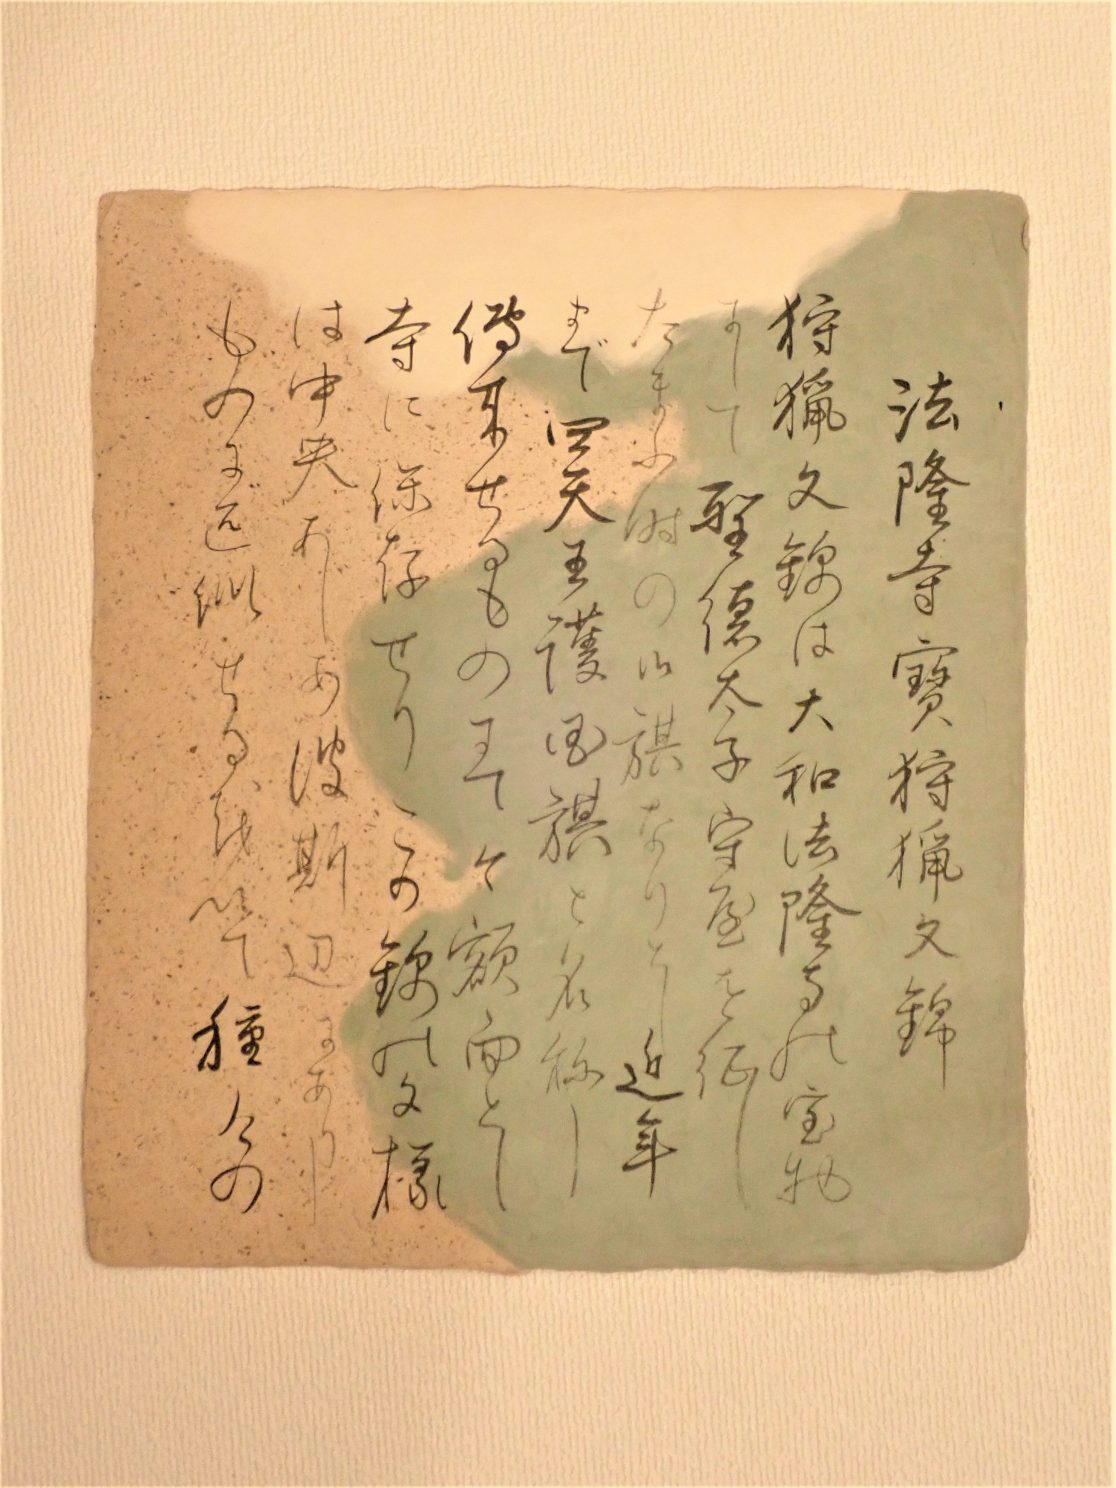 法隆寺寶狩猟文錦
狩猟文錦は大和法隆寺の宝物
にして聖徳太子守屋を征し
たまふ時の御旗なりしを近年
まで四天王護国旗と名称し
傳来せるものにて今額面として
寺に保存せりこの錦の文様
は中央あじあ波斯辺にありし
ものに近似せる
種々の